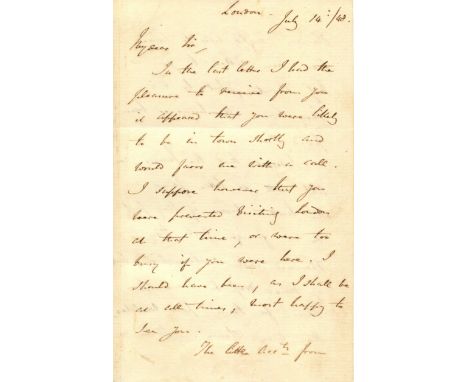 London - July 14th/43.
My dear Sir,
In the last letter I had the
pleasure to receive from you
it appeared that you were likely
to be in town shortly and
would favor me with a call.
I suppose however that you
were prevented visiting London
at that time, or were too
busy if you were here. I
should have been, as I shall be
at all times, most happy to
see you.
The little from